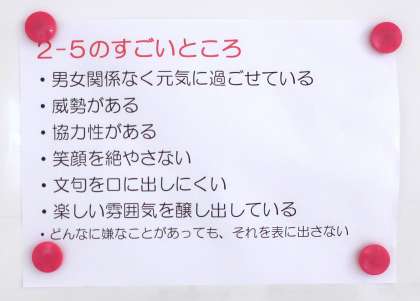 2-5のすごいところ
・男女関係なく元気に過ごせている
・威勢がある
・協力性がある
・笑顔を絶やさない
・文句を口に出しにくい
・楽しい雰囲気を醸し出している
・どんなに嫌なことがあっても、それを表に出さない